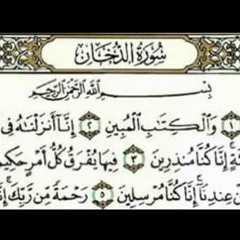 سُورَةُ الدُّخَانِ
بِسْمِ اللَّهِ الرَّحْمَٰنِ الرَّحِيمِ
١ وَالْكِتَٰبِ الْمُبِينِ ٢ إِنَّآ أَنزَلْنَٰهُ فِى
إِنَّا كُنَّا مُنذِرِينَ ٣ فِيهَا يُفْرَقُ كُلُّ أَمْرٍ حَكِيمٍ
عِندِنَآ إِنَّا كُنَّا مُرْسِلِينَ ٥ رَحْمَةً مِّن رَّبِّكَ